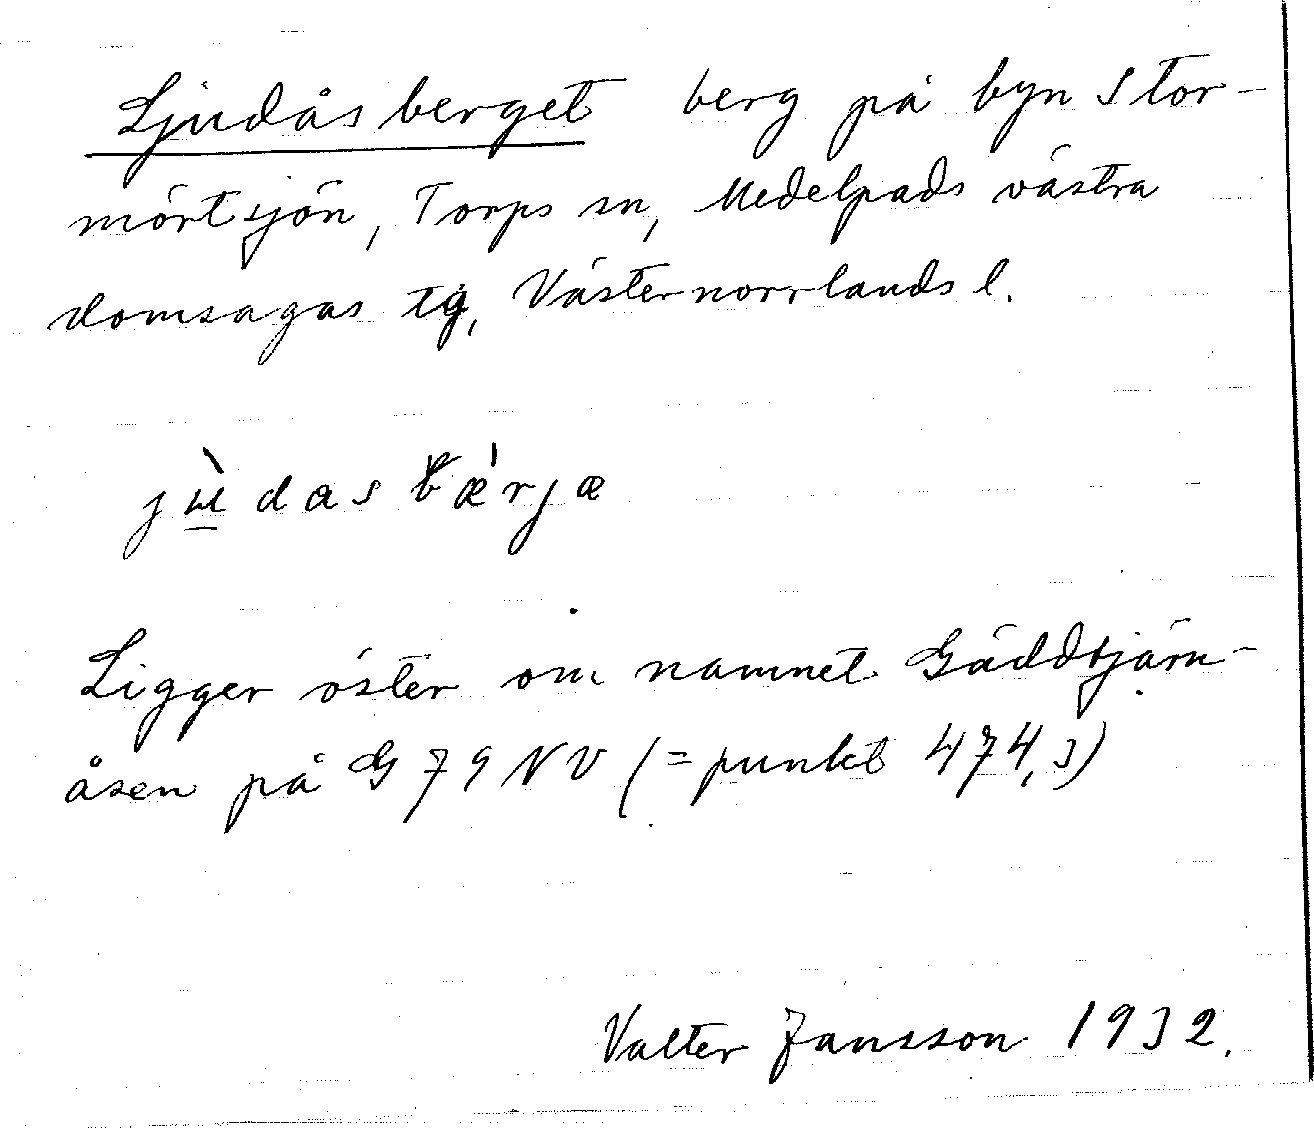 Ljudåsberget berg på byn Stor-
mörtsjön, Torps sn, Medelpads västra
domsagas tg, Västernorrlands l.
jùdasbǽrjæ
Ligger öster om namnet Gäddtjärn-
åsen på G 79 NV (= punkt 474,3)
Valter Jansson 1932.